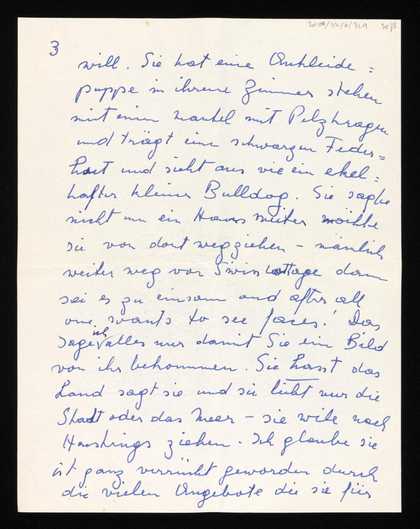 3
will. Sie hat eine Ankleide =
puppe in ihrem Zimmer stehen
mit einem Mantel mit Pelzkragen
und trägt eine schwarzen Feder=
hut und sieht aus wie ein ekel=
hafter kleiner Bulldog. Sie sagte
nicht um ein Haus weiter möchte
sie von dort wegziehen – nämlich
weiter weg von Swiss Cottage dann
sei es zu einsam und after all
one wants to see faces! Das
sage ich alles nur damit Sie ein Bild
von ihr bekommen. Sie hasst das
Land sagt sie und sie liebt nur die
Stadt oder das Meer – sie will nach
Hastings ziehen. Ich glaube sie
ist ganz verrückt geworden durch
die vielen Angebote die sie für